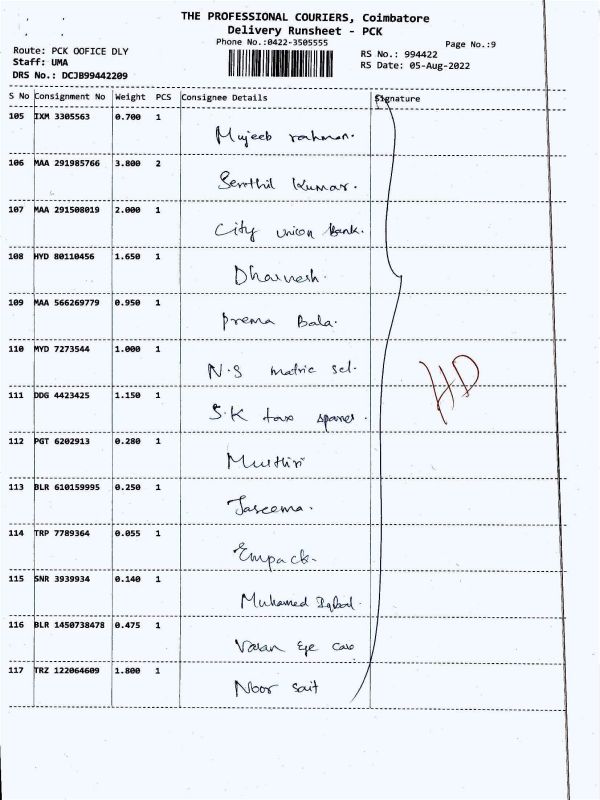 THE PROFESSIONAL COURIERS, Coimbatore
Delivery Runsheet - PCK
Phone No.:0422-3505555
Page No.:9
Route: PCK OOFICE DLY
Staff: UMA
DRS No.: DCJB99442209
RS No.: 994422
RS Date: 05-Aug-2022
S No Consignment No Weight PCS Consignee Details Signature
105 IXM 3305563 0.700 1
Mujeeb rahman.
106 MAA 291985766 3.800 2
Senthil Kumar.
107 MAA 291508019 2.000 1
City union Bank.
108 HYD 80110456 1.650 1
Dharnesh.
109 MAA 566269779 0.950 1
Prema Bala.
110 MYD 7273544 1.000 1
N.S matric scl.
HD
111 DDG 4423425 1.150 1
S.K spares.
112 PGT 6202913 0.280 1
113 BLR 610159995 0.250 1
Jaseema.
114 TRP 7789364 0.055 1
Empack.
115 SNR 3939934 0.140 1
Muhamed Iqbal.
116 BLR 1450738478 0.475 1
Vasan Eye Care
117 TRZ 122064609 1.800 1
Noor Sait